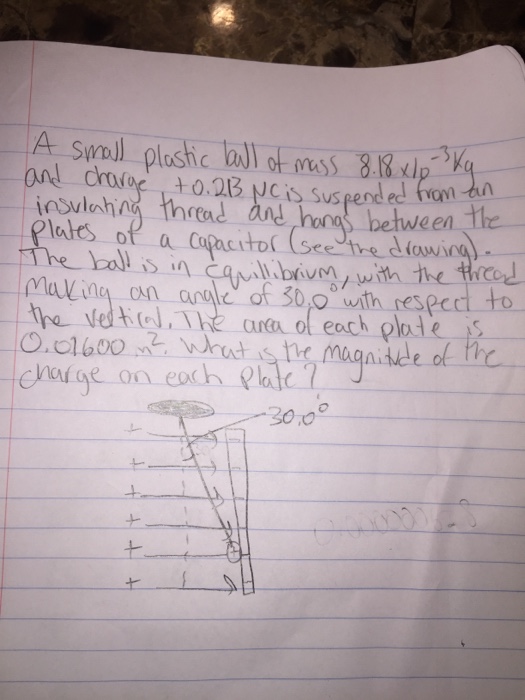 A small plastic ball of mass 8.18 x10⁻³Kg
and charge +0.213 μC is suspended from an
insulating thread and hangs between the
plates of a capacitor (see the drawing).
The ball is in equillibrium, with the thread
making an angle of 30,0° with respect to
the vertical. The area of each plate is
0.01600 m². What is the magnitude of the
charge on each plate?
30.0°
+
+
+
+
+
+
+